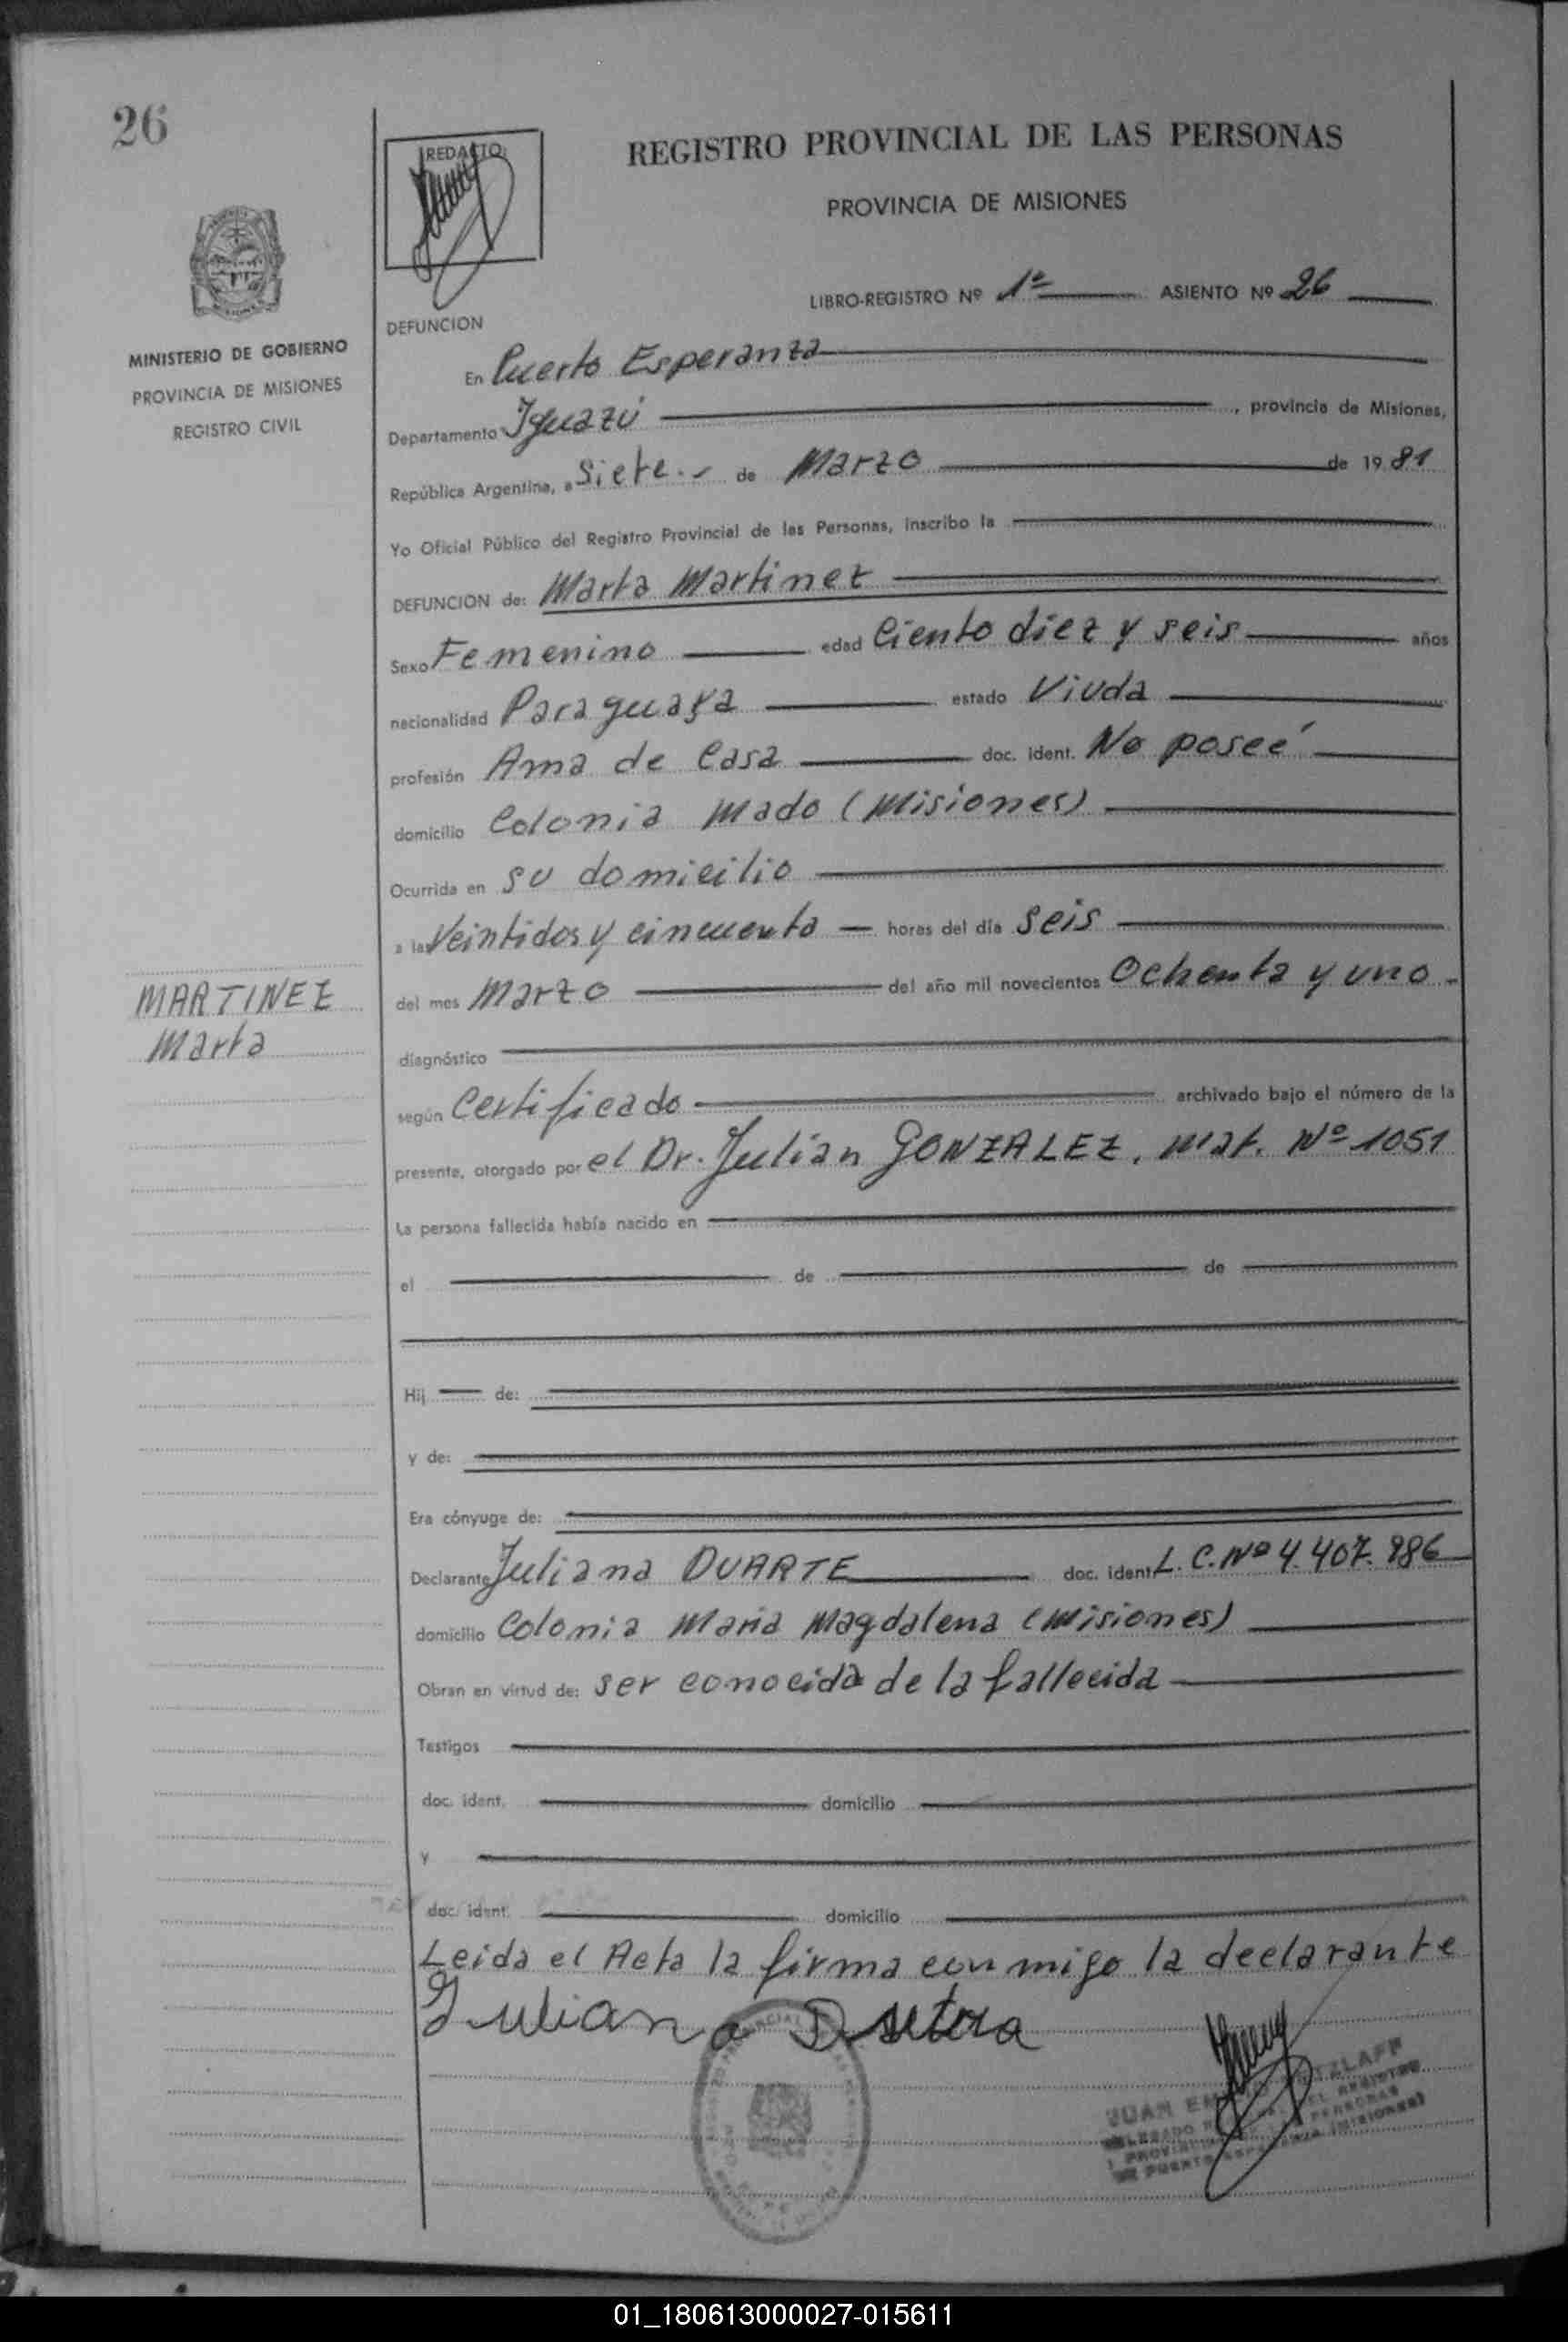 26
REDACTO:
REGISTRO PROVINCIAL DE LAS PERSONAS
PROVINCIA DE MISIONES
LIBRO-REGISTRO Nº 1º ASIENTO Nº 26
MINISTERIO DE GOBIERNO
PROVINCIA DE MISIONES
REGISTRO CIVIL
DEFUNCION
En Puerto Esperanza
Departamento Iguazú, provincia de Misiones,
República Argentina, a Siete.- de Marzo de 1981
Yo Oficial Público del Registro Provincial de las Personas, inscribo la
DEFUNCION de: Marta Martinez
Sexo Femenino edad Ciento diez y seis años
nacionalidad Paraguaya estado Viuda
profesión Ama de Casa doc. ident. No poseé
domicilio Colonia Mado (Misiones)
Ocurrida en su domicilio
a las Veintidos y cincuenta horas del día seis
MARTINEZ
Marta
del mes Marzo del año mil novecientos Ochenta y uno
diagnóstico
según Certificado archivado bajo el número de la
presente, otorgado por el Dr. Julián GONZALEZ, Mat. Nº 1051
La persona fallecida había nacido en
el de de
Hij de:
y de:
Era cónyuge de:
Declarante Juliana DUARTE doc. ident. L.C. Nº 4.407.986
domicilio Colonia María Magdalena (Misiones)
Obran en virtud de: ser conocida de la fallecida
Testigos
doc. ident. domicilio
y
doc. ident. domicilio
Leida el Acta la firma conmigo la declarante
Juliana
JUAN
PUERTO ESPERANZA (MISIONES)
01_180613000027-015611